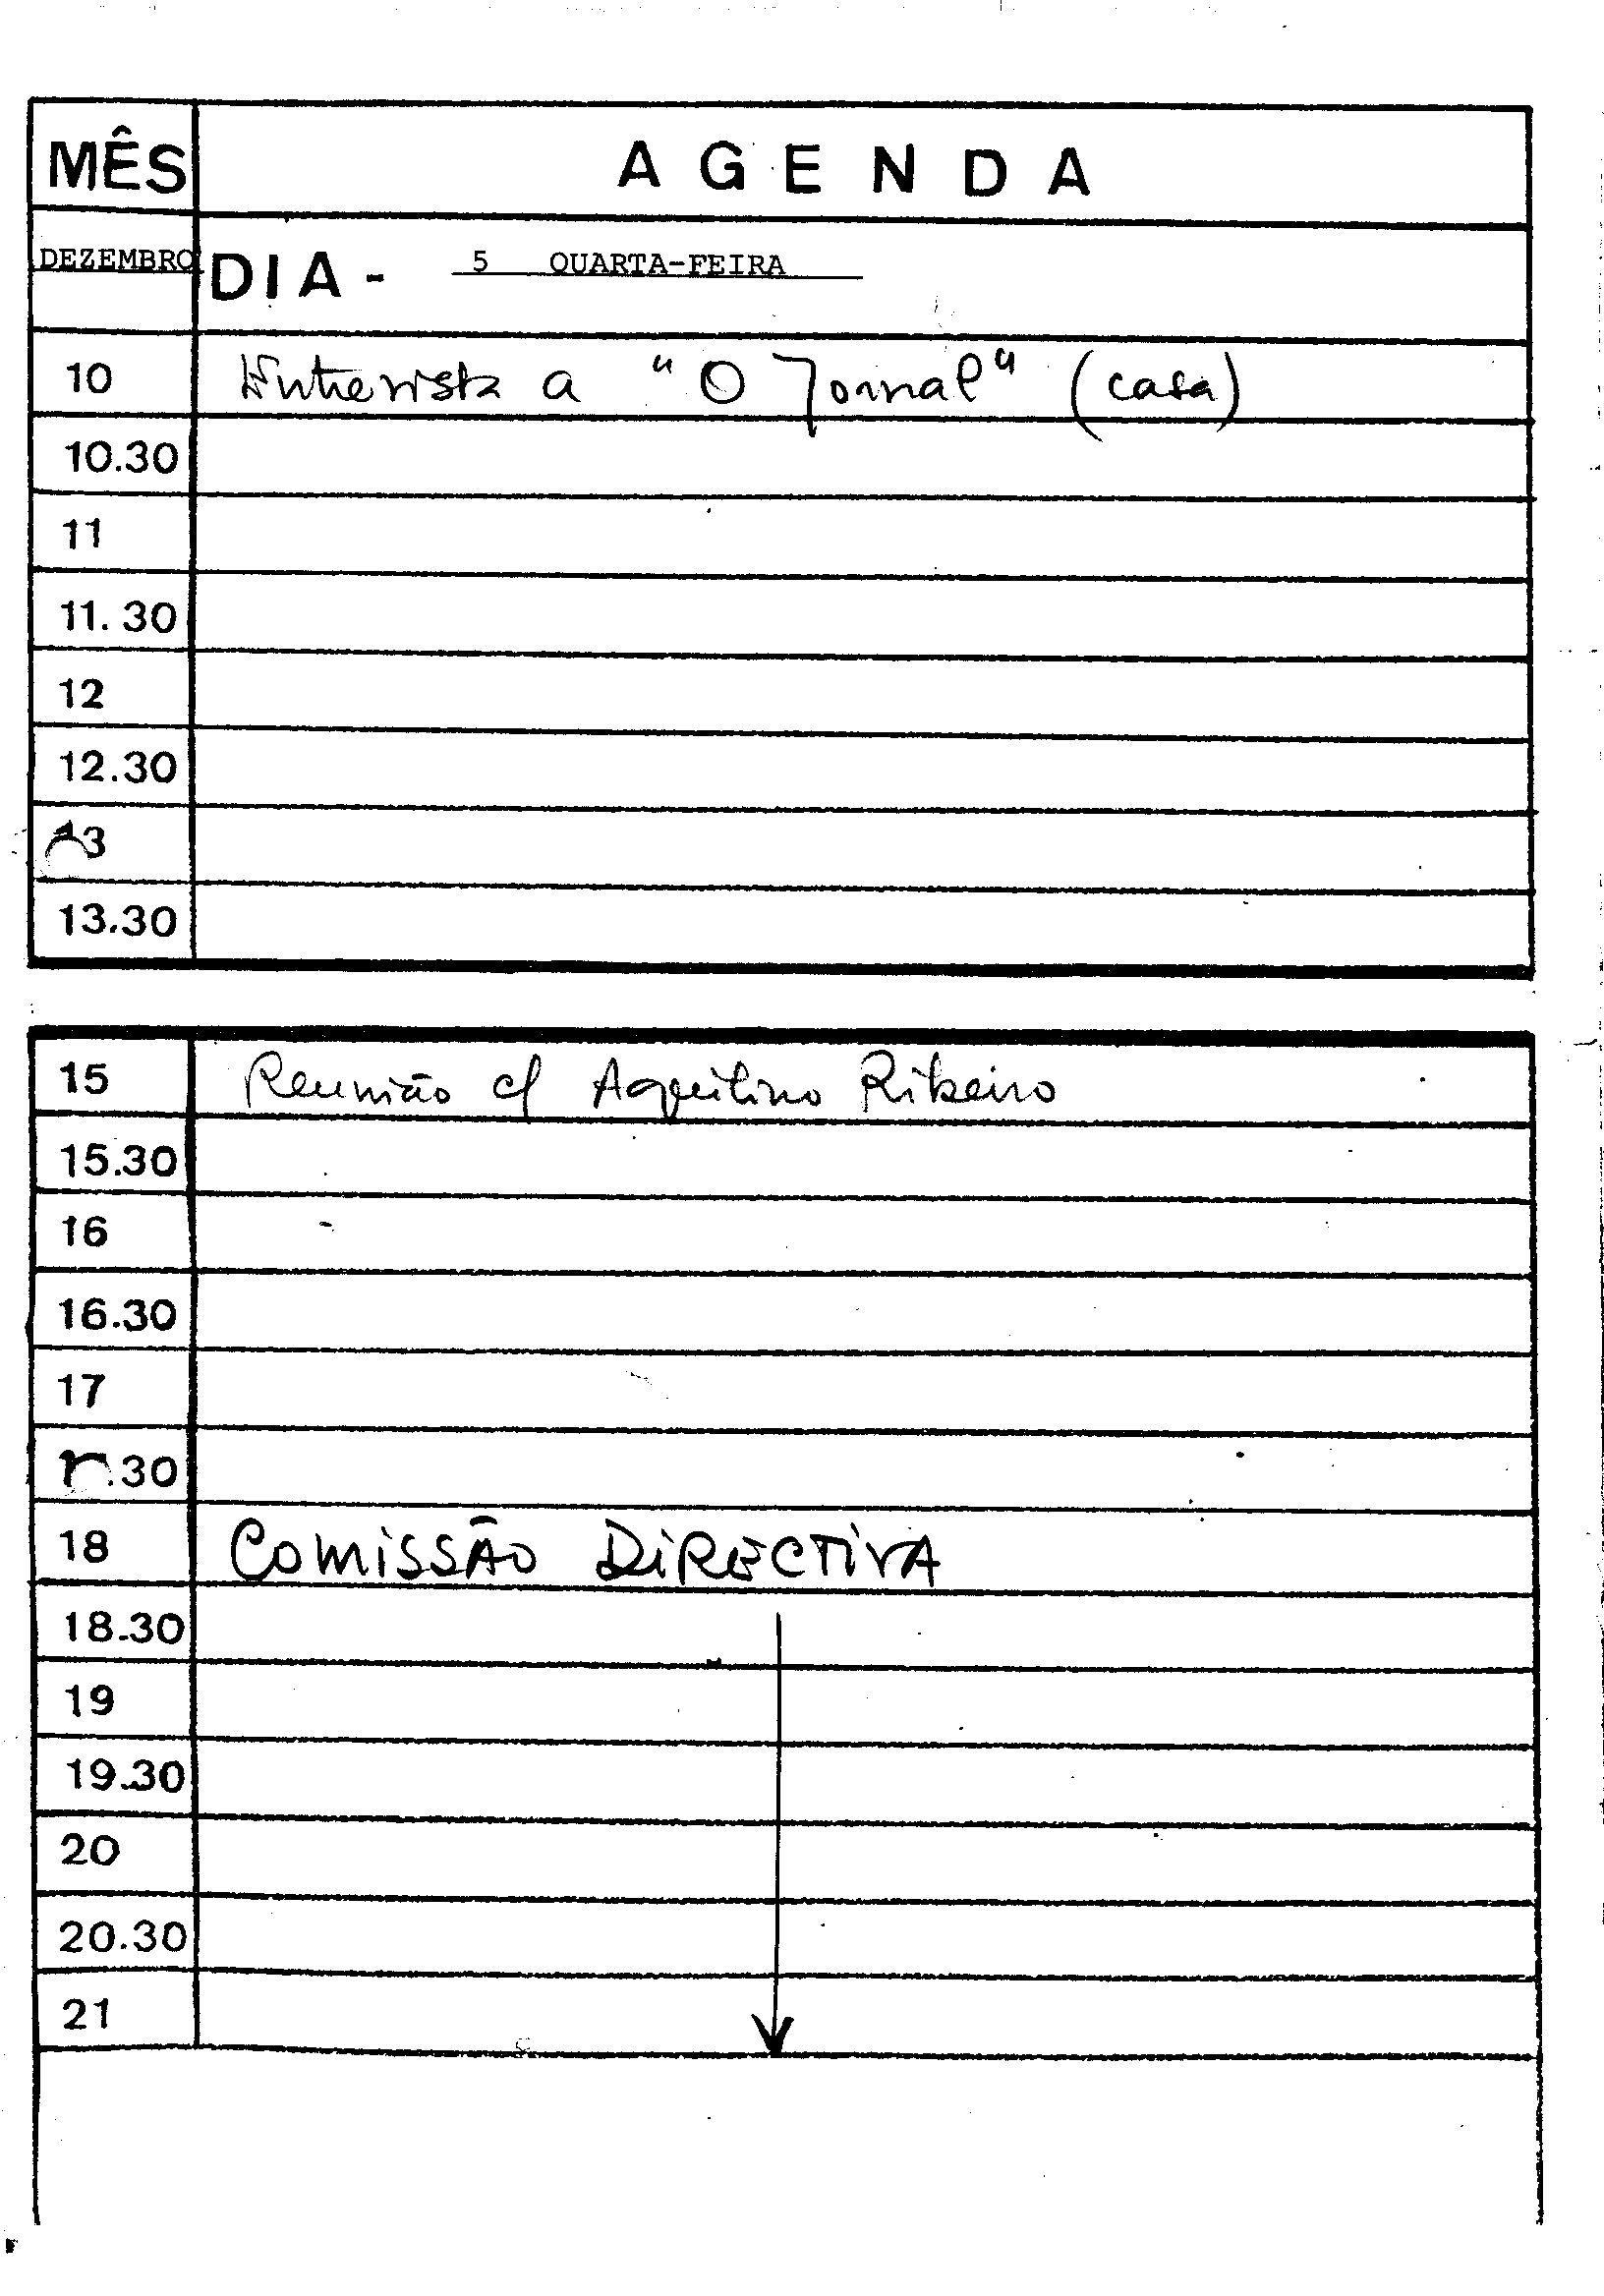 MÊS A G E N D A
DEZEMBRO DIA - 5 QUARTA-FEIRA
10 Entrevista a "O Jornal" (casa)
10.30
11
11.30
12
12.30
13
13.30
15 Reunião c/ Aquilino Ribeiro
15.30
16
16.30
17
.30
18 COMISSÃO DIRECTIVA
18.30
19
19.30
20
20.30
21